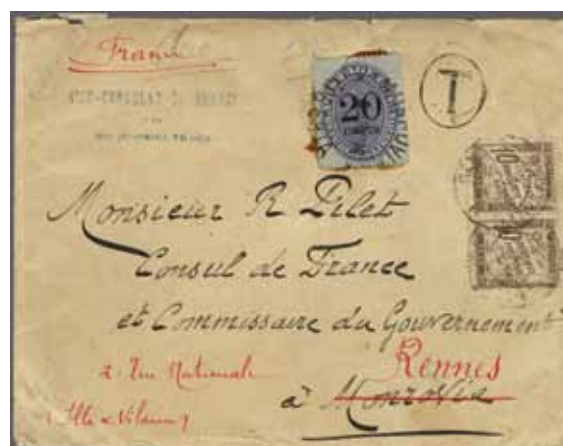 France
VICE-CONSULAT DE FRANCE
T
20
Monsieur R Pilet
Consul de France
et Commissaire du Gouvernement
Rennes
2. Rue Nationale
à Monrovia
Ille & Vilaine